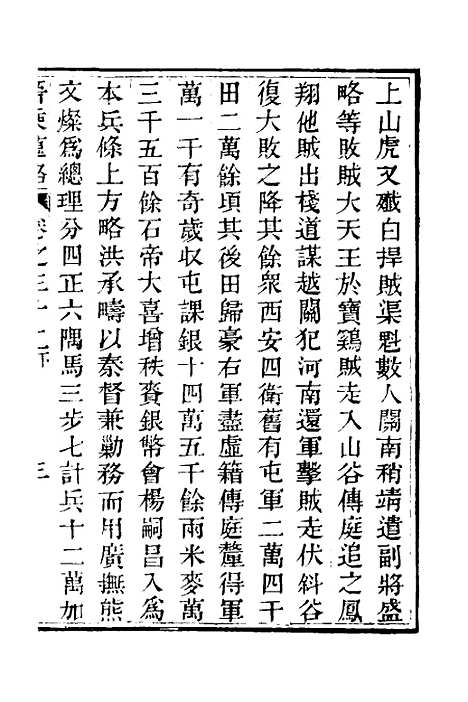 上山虎又殲白捍賊渠魁數人關南稍靖遣副將盛
略等敗賊大天王於寶鷄賊走入山谷傳庭追之鳳
翔他賊出棧道謀越關犯河南還軍擊賊走伏斜谷
復大敗之降其餘衆西安四衛舊有屯軍二萬四千
田二萬餘頃其後田歸豪右軍盡虛籍傳庭釐得軍
萬一千有奇歲収屯課銀十四萬五千餘兩米麥萬
三千五百餘石帝大喜增秩賚銀幣會楊嗣昌入爲
本兵條上方略洪承疇以秦督兼勦務而用廣撫熊
文燦爲總理分四正六隅馬三步七計兵十二萬加
卷之三十 三